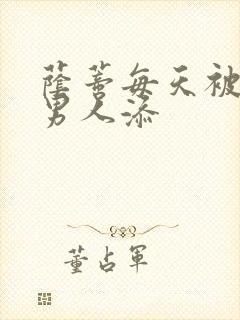 蔭蒂每天被
男人添
董占軍